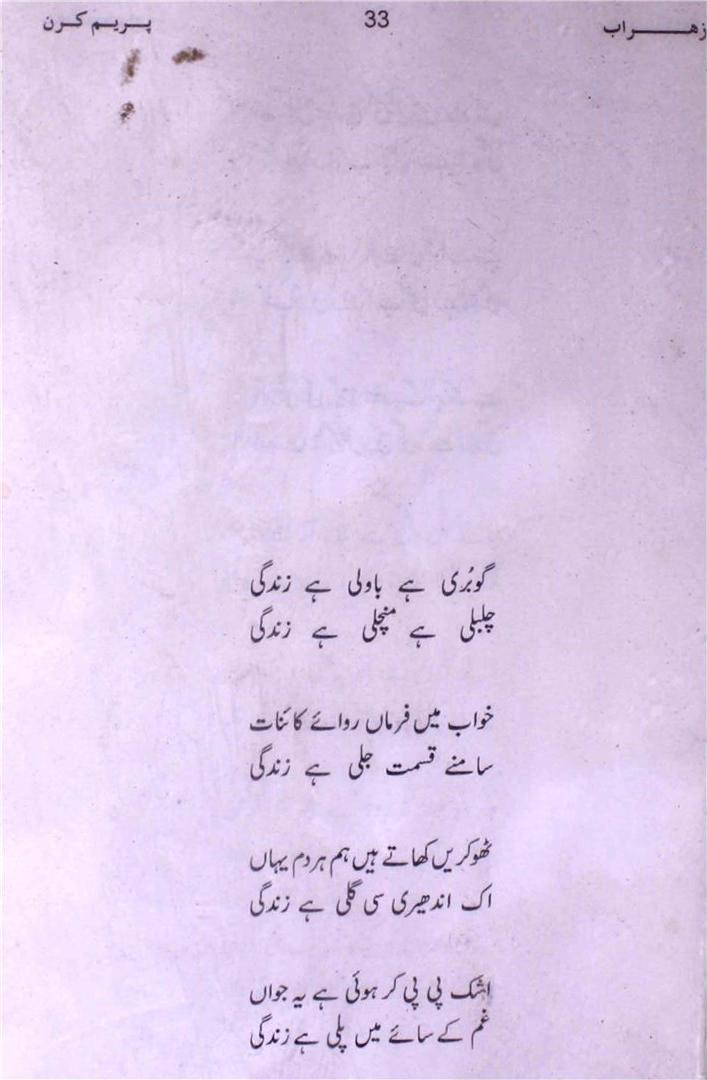 زهراب 33 پریم کرن
گو بُری ہے باولی ہے زندگی
چلبلی ہے منچلی ہے زندگی
خواب میں فرماں روائے کائنات
سامنے قسمت جلی ہے زندگی
ٹھوکریں کھاتے ہیں ہم ہر دم یہاں
اک اندھیری سی گلی ہے زندگی
اشک پی پی کر ہوئی ہے یہ جواں
غم کے سائے میں پلی ہے زندگی